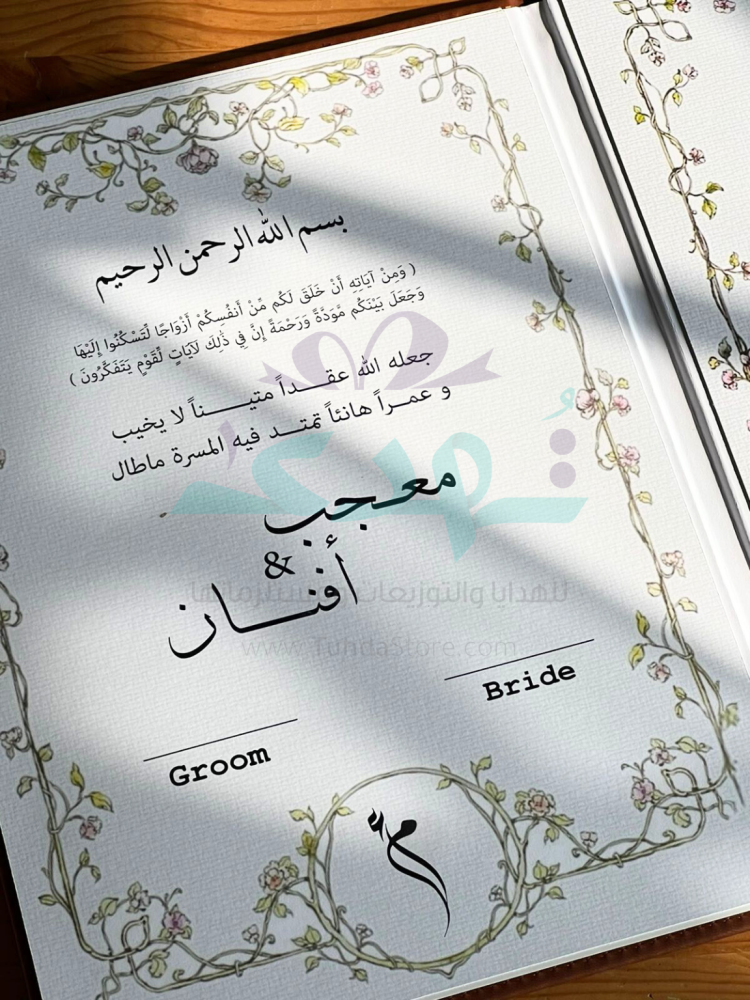 بسم الله الرحمن الرحيم
( وَمِنْ آيَاتِهِ أَنْ خَلَقَ لَكُم مِّنْ أَنفُسِكُمْ أَزْوَاجًا لِّتَسْكُنُوا إِلَيْهَا
وَجَعَلَ بَيْنَكُم مَّوَدَّةً وَرَحْمَةً إِنَّ فِي ذَٰلِكَ لَآيَاتٍ لِّقَوْمٍ يَتَفَكَّرُونَ )
جعله الله عقـــداً متيـــناً لا يخيب
و عمـراً هانئاً تمتـد فيه المسرة ماطال
تهدى
معـجب
&
أفنـــان
للهدايا والتوزيعات ومستلزماتها
www.TuhdaStore.com
Bride
Groom
م أ